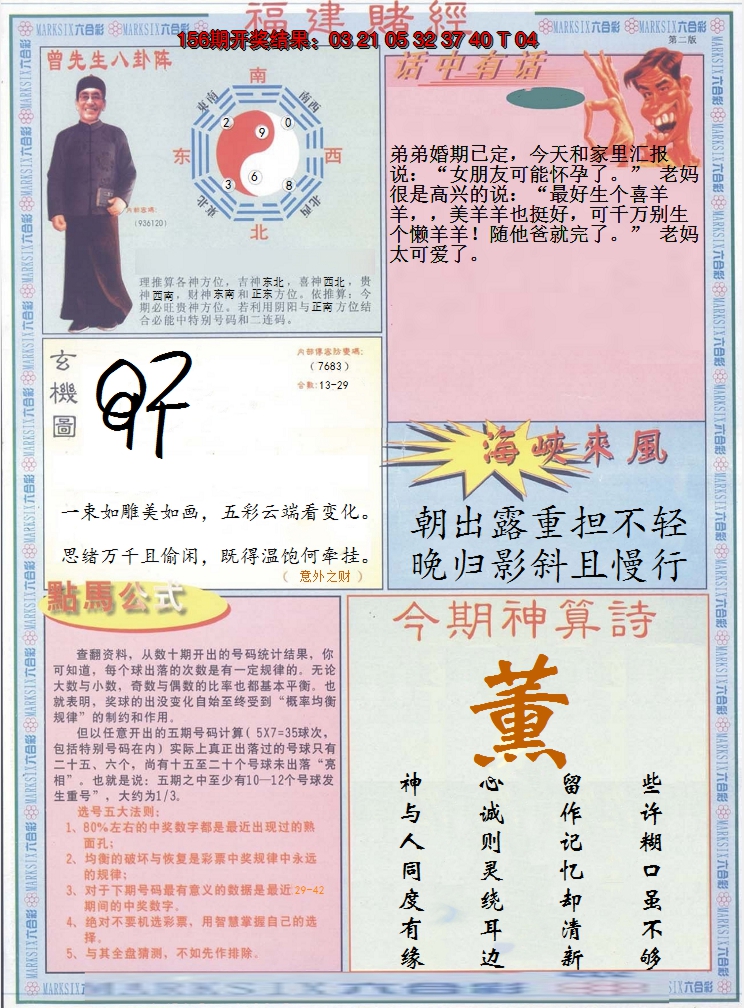 福建赌經
156期开奖结果：03 21 05 32 37 40 T 04
MARKSIX六合彩
第二版
曾先生八卦阵
南
東南
西南
2
9
0
东
西
3
6
8
東北
西北
北
内部密碼:
(936120)
理推算各神方位，吉神东北，喜神西北，贵
神西南，财神东南和正东方位。依推算：今
期必旺贵神方位。若利用阴阳与正南方位结
合必能中特别号码和二连码。
话中有话
弟弟婚期已定，今天和家里汇报
说：“女朋友可能怀孕了。” 老妈
很是高兴的说：“最好生个喜羊
羊，，美羊羊也挺好，可千万别生
个懒羊羊！随他爸就完了。” 老妈
太可爱了。
玄
機
圖
(7683)
合数:13-29
一束如雕美如画，五彩云端看变化。
思绪万千且偷闲，既得温饱何牵挂。
（ 意外之财 ）
海峽來風
朝出露重担不轻
晚归影斜且慢行
點馬公式
查翻资料，从数十期开出的号码统计结果，你
可知道，每个球出落的次数是有一定规律的。无论
大数与小数，奇数与偶数的比率也都基本平衡。也
就表明，奖球的出没变化自始至终受到“概率均衡
规律”的制约和作用。
但以任意开出的五期号码计算( 5X7=35球次，
包括特别号码在内）实际上真正出落过的号球只有
二十五、六个，尚有十五至二十个号球未出落“亮
相”。也就是说：五期之中至少有10—12个号球发
生重号”，大约为1/3。
选号五大法则：
1、80%左右的中奖数字都是最近出现过的熟
面孔；
2、均衡的破坏与恢复是彩票中奖规律中永远
的规律；
3、对于下期号码最有意义的数据是最近29-42
期间的中奖数字。
4、绝对不要机选彩票，用智慧掌握自己的选
择。
5、与其全盘猜测，不如先作排除。
今期神算詩
薰
些许糊口虽不够
留作记忆却清新
心诚则灵绕耳边
神与人同度有缘